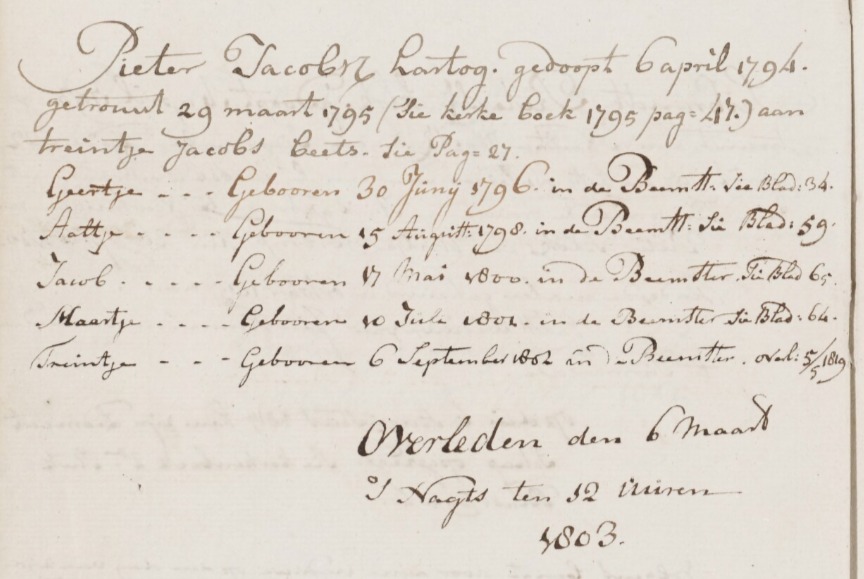 Pieter Jacobsz hartog. gedoopt 6 april 1794.
getrouwt 29 maart 1795 (Sie kerke boek 1795 pag= 47.) aan
treintje Jacobs beets. Sie Pag= 27.
Geertje - - - Gebooren 30 Juny 1796. in de Beemstr. Sie Blad: 34.
Aaltje - - - - Gebooren 15 Augustt: 1798. in de Beemstr: Sie Blad: 59.
Jacob. - - - - Gebooren 17 Mai 1800. in de Beemster. Sie Blad 65.
Maartje - - - - Gebooren 10 Julii 1801. in de Beemster Sie Blad: 64.
Treintje - - - Gebooren 6 September 1802 in de Beemster. overl: 5/5 1819
Overleden den 6 Maart
's Nagts ten 12 uuren
1803.